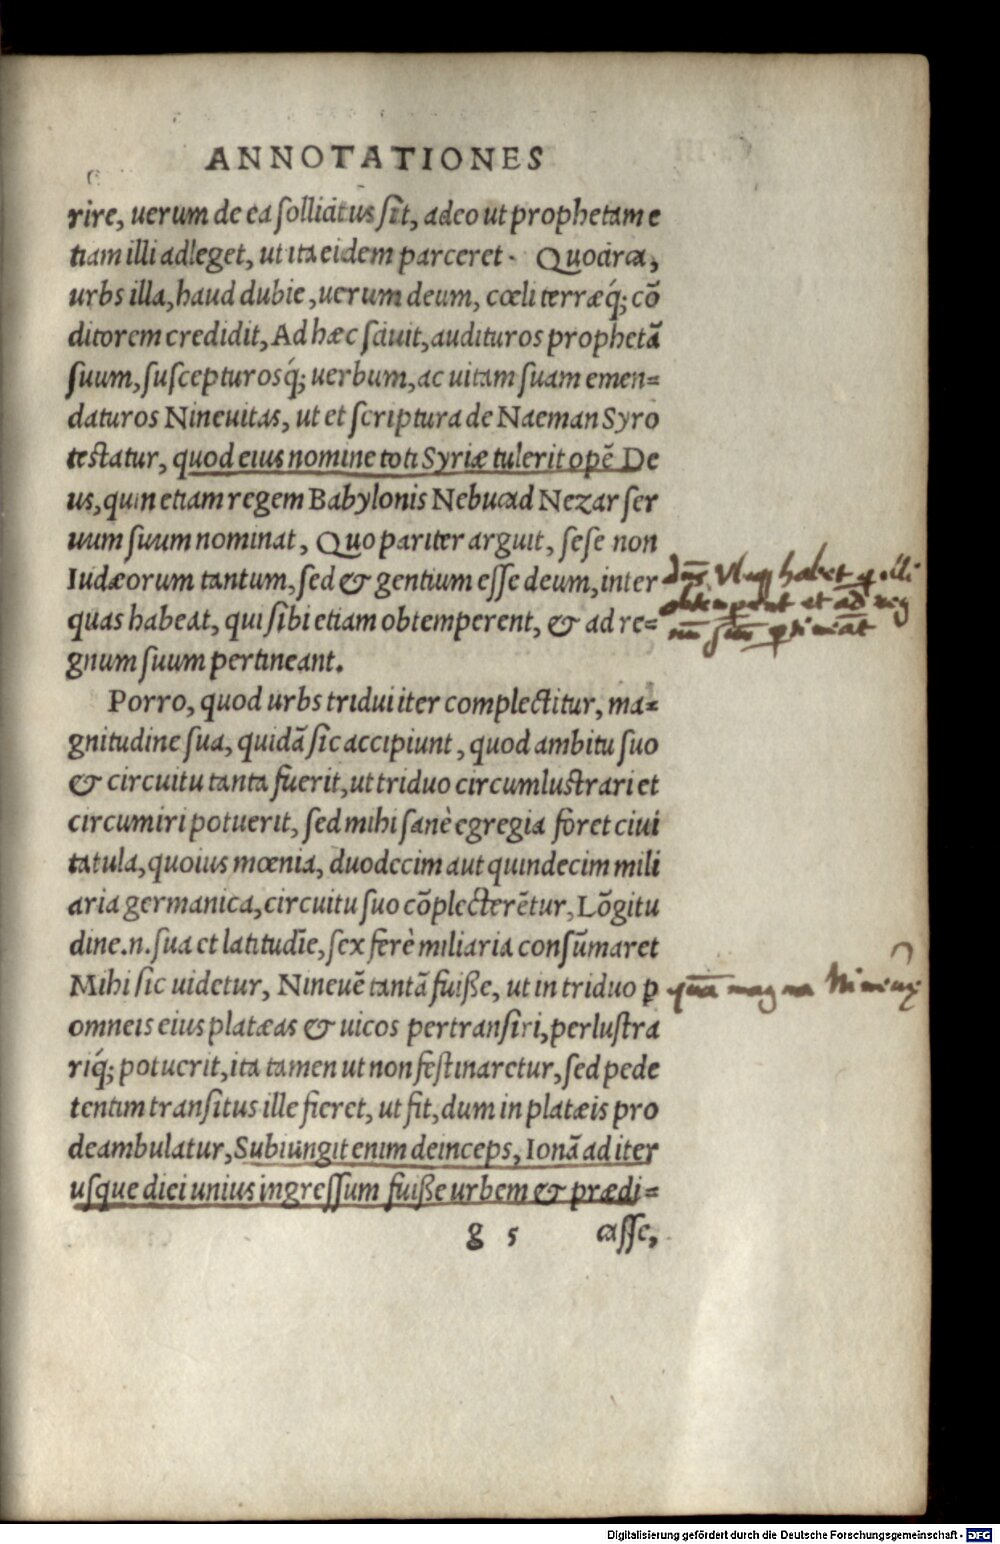 ANNOTATIONES
rire, uerum de ea sollicitus sit, adeo ut prophetam e
tiam illi adleget, ut ita eidem parceret. Quocirca,
urbs illa, haud dubie, uerum deum, cœli terræq́; cõ
ditorem credidit, Ad hæc sciuit, audituros prophetã
suum, suscepturosq́; uerbum, ac uitam suam emen=
daturos Nineuitas, ut et scriptura de Naeman Syro
testatur, quod eius nomine toti Syriæ tulerit opẽ De
us, quin etiam regem Babylonis Nebucad Nezar ser
uum suum nominat, Quo pariter arguit, sese non
Iudæorum tantum, sed & gentium esse deum, inter
quas habeat, qui sibi etiam obtemperent, & ad re=
gnum suum pertineant.
Porro, quod urbs tridui iter complectitur, ma=
gnitudine sua, quidã sic accipiunt, quod ambitu suo
& circuitu tanta fuerit, ut triduo circumlustrari et
circumiri potuerit, sed mihi sanè egregia foret ciui
tatula, quoius mœnia, duodecim aut quindecim mili
aria germanica, circuitu suo cõplecterẽtur, Lõgitu
dine.n. sua et latitudĩe, sex ferè miliaria consũmaret
Mihi sic uidetur, Nineuẽ tantã fuiße, ut in triduo ꝑ
omneis eius platæas & uicos pertransiri, perlustra
riq́; potuerit, ita tamen ut non festinaretur, sed pede
tentim transitus ille fieret, ut fit, dum in platæis pro
deambulatur, Subiungit enim deinceps, Ionã ad iter
usque diei unius ingressum fuiße urbem & prædi=
g 5 casse,
habet q illi
obtemperent et ad reg
nũ suũ ꝑtineãt
quã magna Niniue
Digitalisierung gefördert durch die Deutsche Forschungsgemeinschaft - DFG